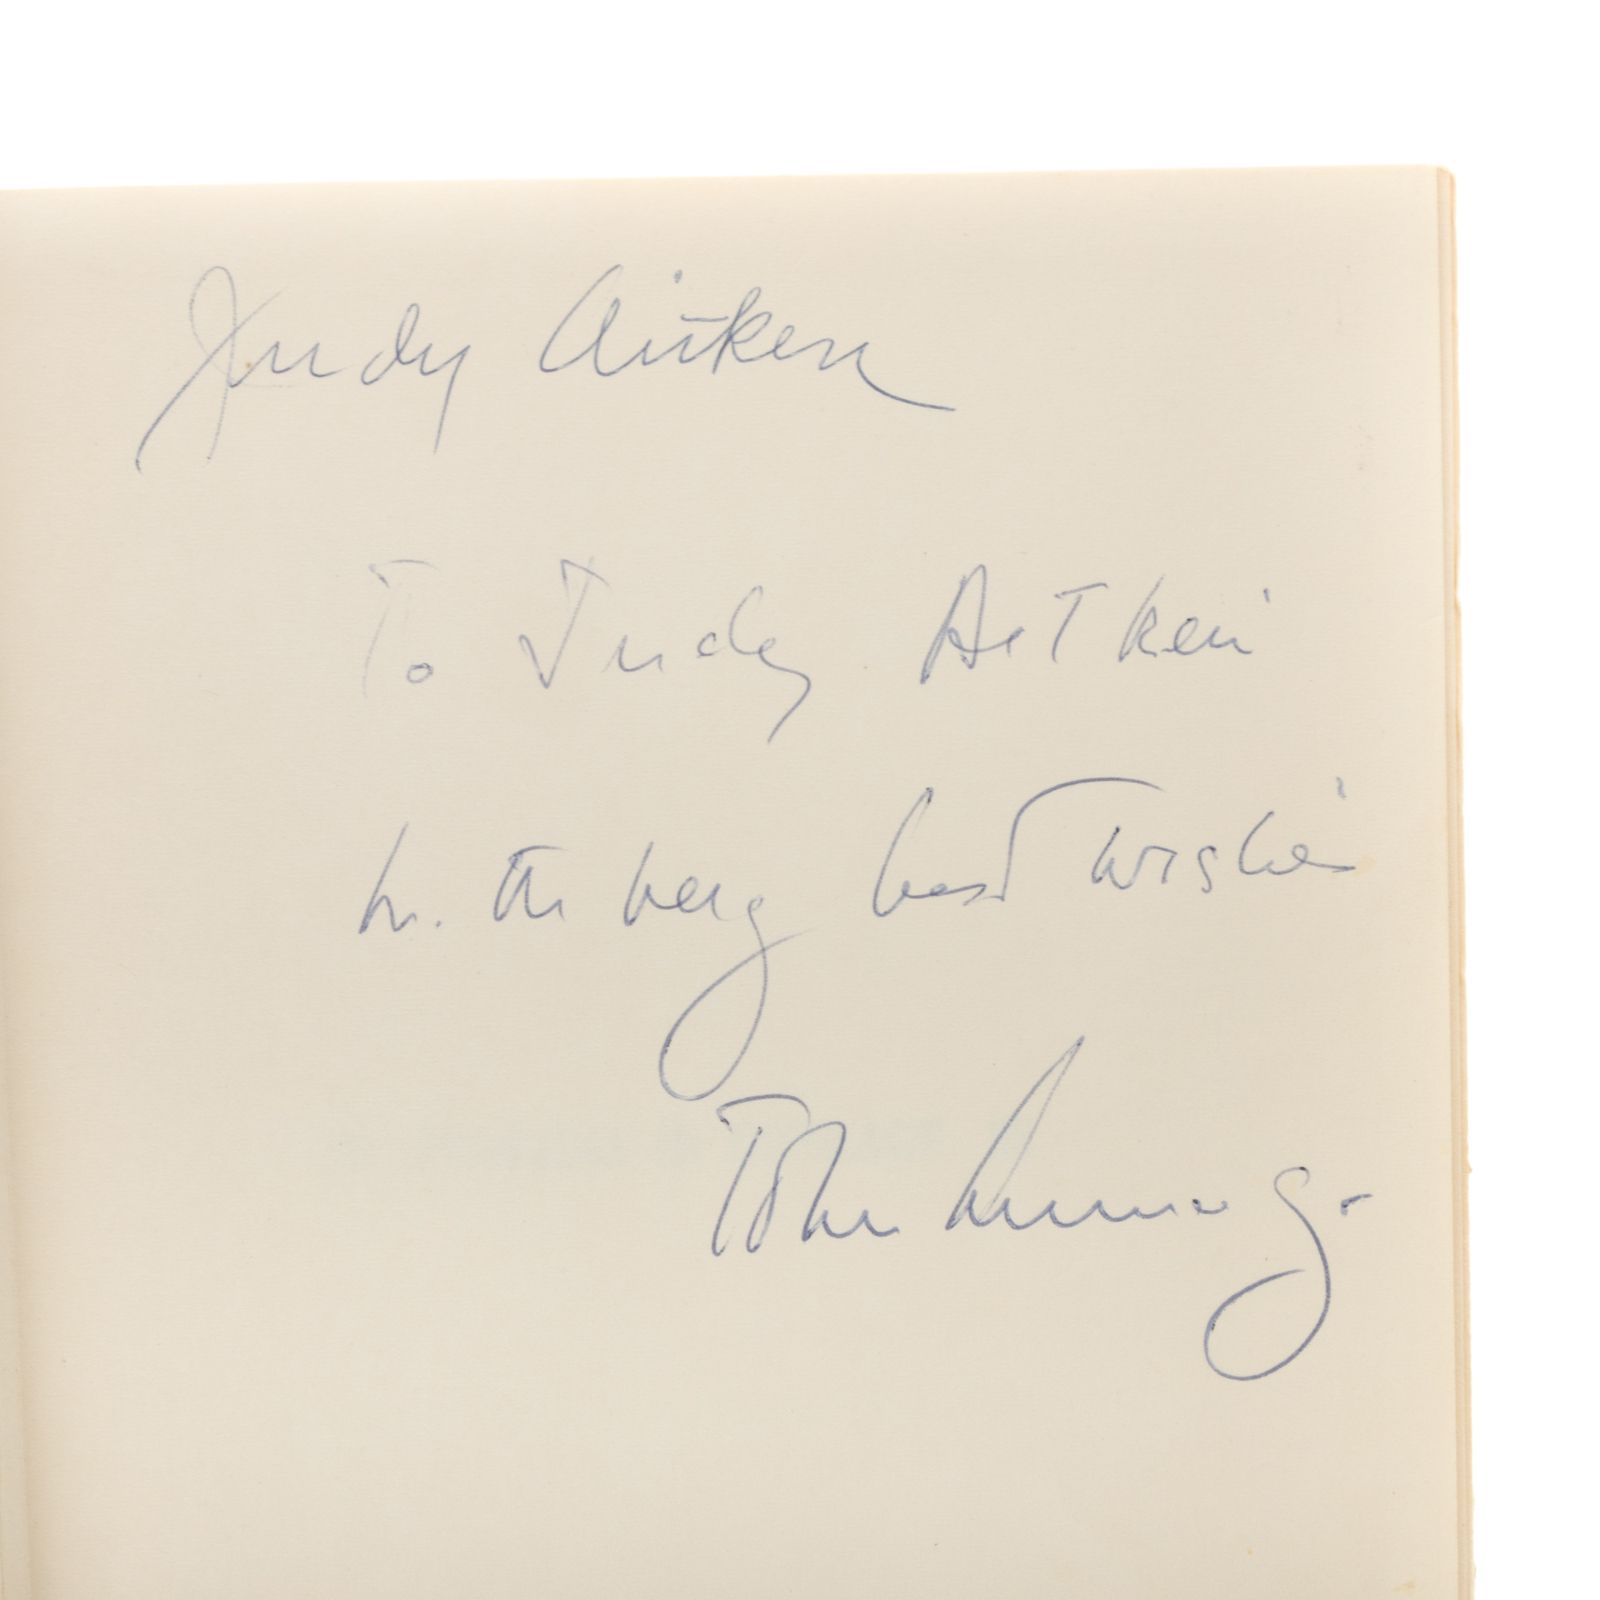 Judy Aitken
To Judy Aitken
with very best wishes
John